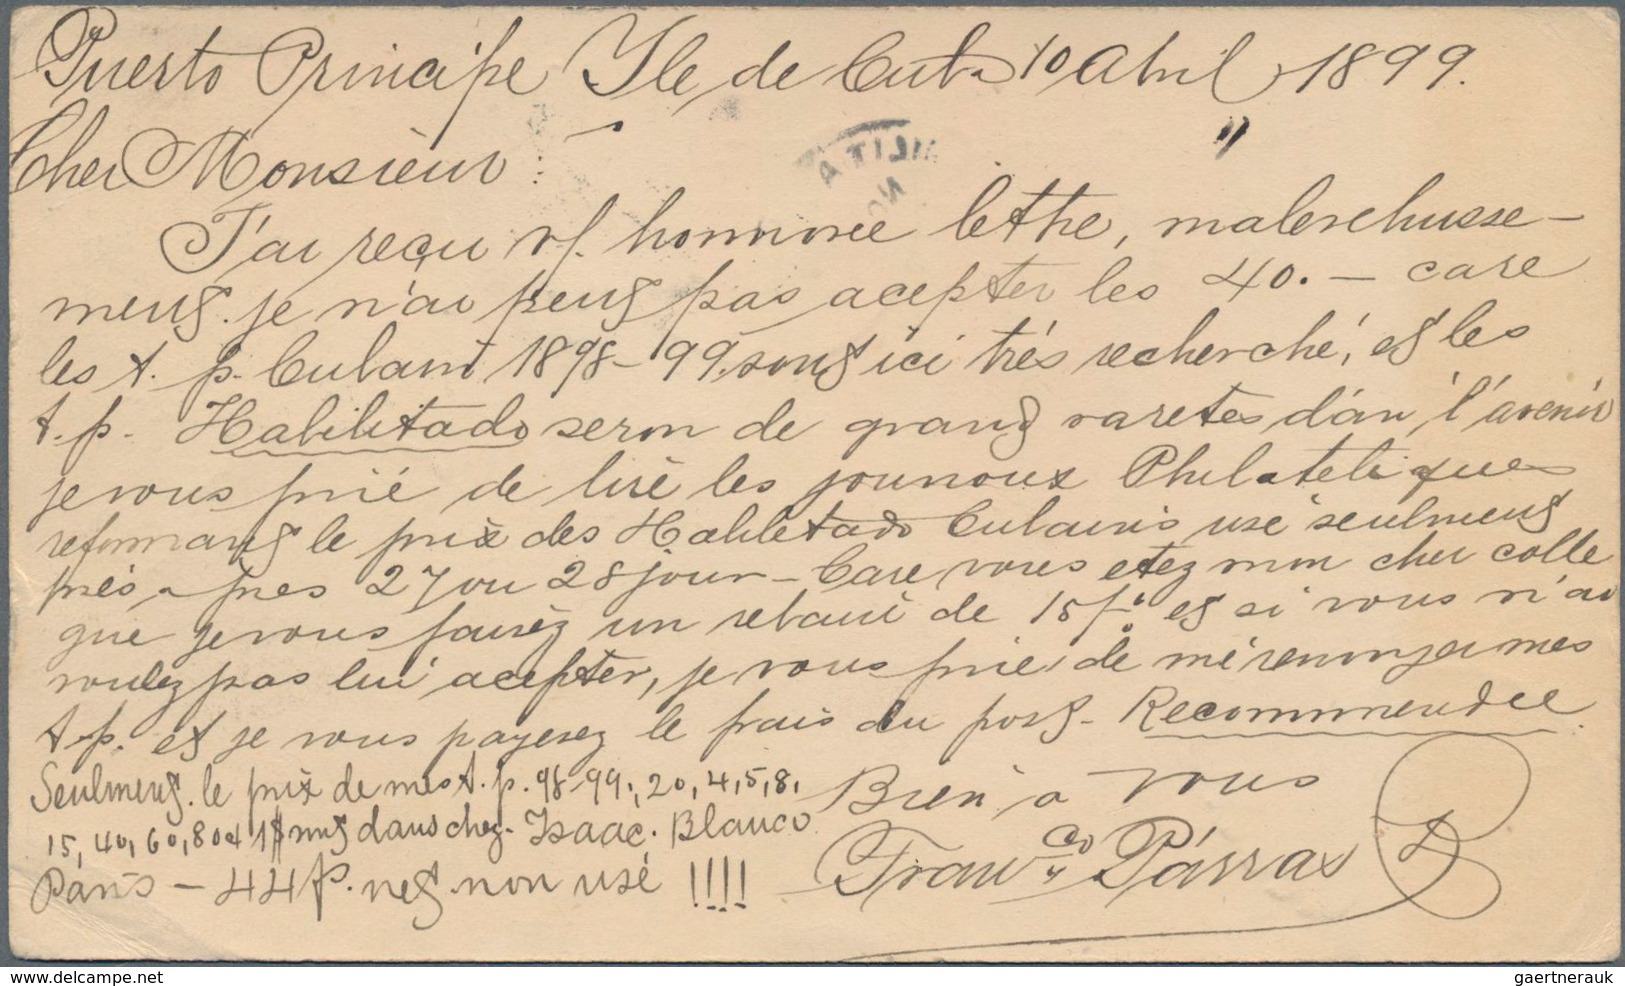 Puerto Principe Yle de Cuba 10 Abril 1899.
Cher Monsieur :
J'ai reçu v/. honnoree lettre, malerehusse-
ment. je n'ai peut pas acepter les 40. — care
les t. p. Cubani 1898-99. sont ici trés recherché, et les
t. p. Habilitado seron de grand raretes dan l'avenir
je vous prié de lire les journoux Philateliques
reformant le prix des Habilitado Cubains usé seulment
prés a pres 27 ou 28 jour — Care vous etez mon cher colle
que je vous fairéz un rebaui de 15 f. et si vous n'ai
voulez pas lui acepter, je vous prie de mé renvoyer mes
t. p. et je vous payerez le frais du post - Recommendee
Seulment. le prix de mes t. p. 98-99., 20, 4, 5, 8,
15, 40, 60, 80 1$ dans chez. Isaac. Blanco
Paris — 44 f. net. non usé !!!!
Bien a vous
Franco Párras
MILITA
delcampe.net
gaertnerauk